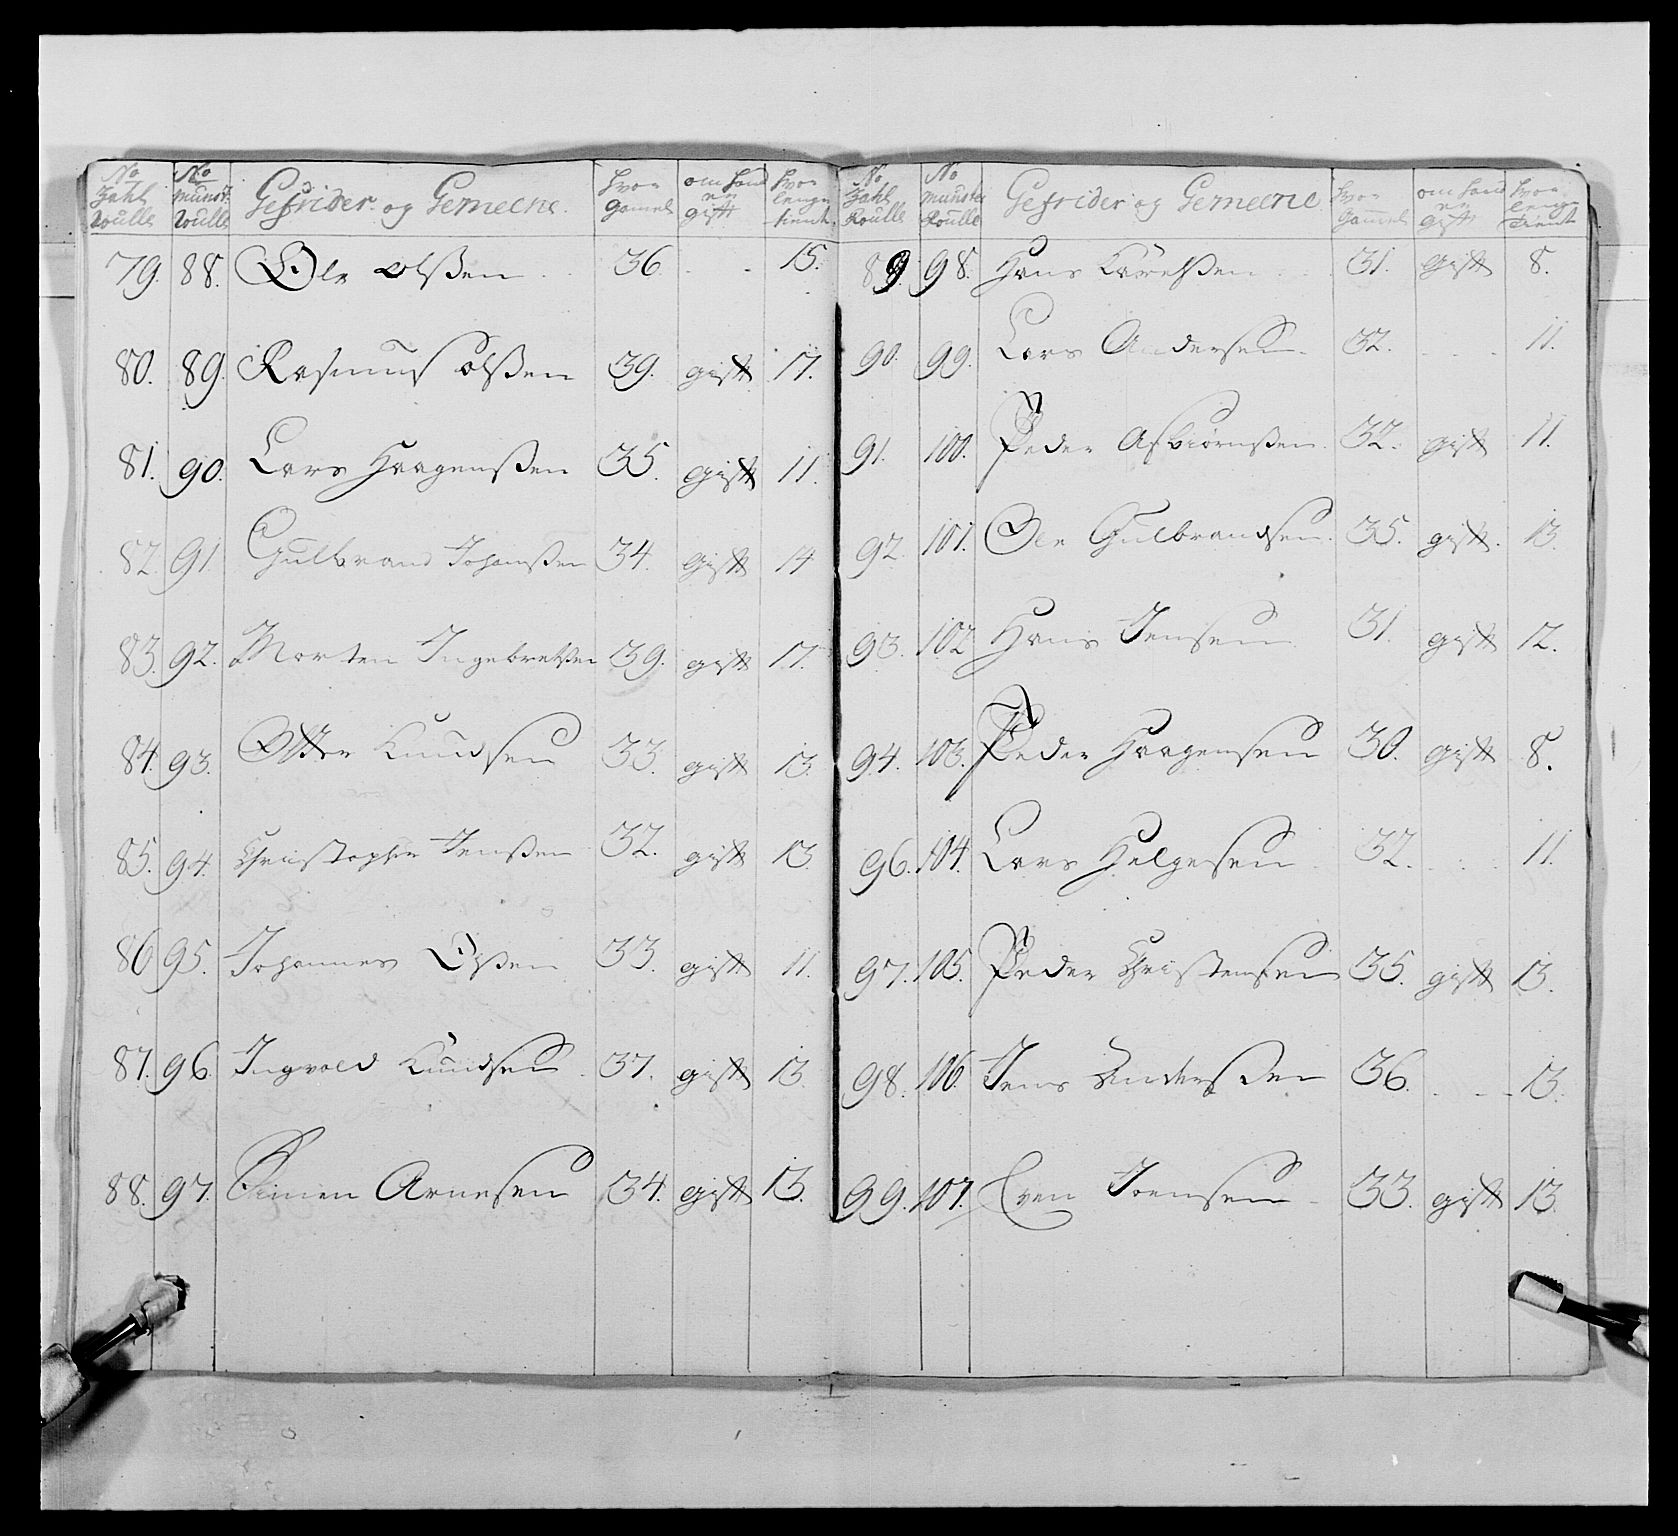 No Zahl Roulle No Munst: Roulle Gefrider og Gemeene. hvor gamel om hand er gift hvor lenge tient
79. 88. Ole Olßen 36. - - 15.
80. 89. Rasmus Olßen 39. gift 17.
81. 90. Lars Haagenßen 35. gift 11.
82. 91. Gulbrand Johanßen 34. gift 14
83. 92. Morten Ingebretßen 39. gift 17.
84. 93. Otter Knudsen 33. gift 13.
85. 94. Christopher Jenßen 32. gift 13.
86 95. Johannes Olßen 33. gift 11.
87. 96. Ingvold Knudsen 37. gift 13.
88. 97. Simen Arnesen 34. gift 13.
No Zahl Roulle No Munster Roulle Gefrider og Gemeene hvor Gammel om hand er gift hvor lenge tient
89. 98. Hans 31. gift 8.
90. 99. Lars Andersen 32. - - - 11.
91. 100. Peder Asbiørnßen 32. gift 11.
92. 101. Ole Gulbrandsen. 35. gift. 13.
93. 102 Hans Jensen 31. gift 12.
94. 103. Peder Haagensen 30. gift 8.
96. 104. Lars Helgesen 32. - - - 11.
97. 105. Peder Christensen 35. gift 13.
98. 106. Jens Anderßen 36. - - - 13.
99. 107. Even Joensen - 33. gift 13.